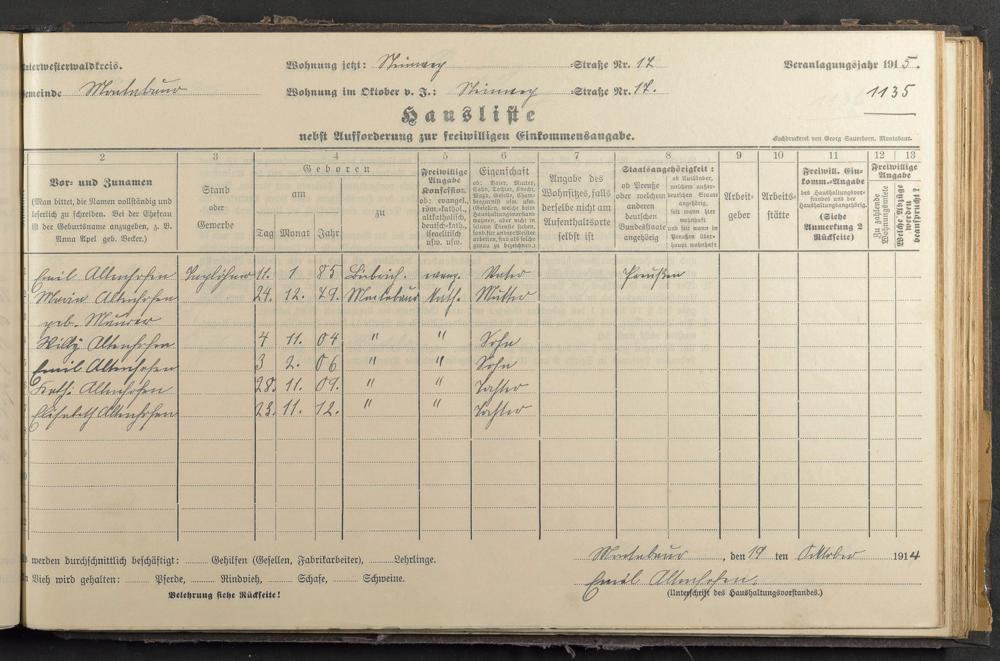 terwesterwaldkreis. Wohnung jetzt: Steinweg Straße Nr. 17 Veranlagungsjahr 1915.
emeinde Montabaur Wohnung im Oktober v. J.: Steinweg Straße Nr. 17. 1135
Hausliste
nebst Aufforderung zur freiwilligen Einkommensangabe.
Buchdruckerei von Georg Sauerborn, Montabaur.
2 3 4 5 6 7 8 9 10 11 12 13
Vor- und Zunamen
(Man bittet, die Namen vollständig und
leserlich zu schreiben. Bei der Ehefrau
ist der Geburtsname anzugeben, z. B.
Anna Apel geb. Becker.)
Stand
oder
Gewerbe
Geboren
am
zu
Tag Monat Jahr
Freiwillige
Angabe
Konfession,
ob: evangel.,
röm.-kathol.,
altkatholisch,
deutsch-kath.,
israelitisch
usw. usw.
Eigenschaft
ob: Vater, Mutter,
Angabe des
Wohnsitzes, falls
derselbe nicht am
Aufenthaltsorte
selbst ist
Staatsangehörigkeit:
ob Preuße
oder welchem
anderen
deutschen
Bundesstaate
angehörig
ob Ausländer,
welchem außer-
deutschen Staat
angehörig,
seit wann hier
wohnhaft
und seit wann in
Preußen über-
haupt wohnhaft
Arbeit-
geber
Arbeits-
stätte
Freiwill. Ein-
komm.-Angabe
des Haushaltungsvor-
standes und der
Haushaltungsangehörig.
(Siehe
Anmerkung 2
Rückseite)
Freiwillige
Angabe
Zu zahlende
Wohnungsmiete
Welche Abzüge
werden
beansprucht?
Emil Altenhofen 11. 1 85 Biebrich. evang. Vater Preußen
Maria Altenhofen 24. 12. 79. Montabaur kath. Mutter
geb. Maurer
Willy Altenhofen 4 11. 04 " " Sohn
Emil Altenhofen 3 2. 06 " " Sohn
Kath. Altenhofen 28. 11. 09. " " Tochter
Elisabeth Altenhofen 23. 11. 12. " " Tochter
werden durchschnittlich beschäftigt: Gehilfen (Gesellen, Fabrikarbeiter), Lehrlinge.
Vieh wird gehalten: Pferde, Rindvieh, Schafe, Schweine.
Belehrung siehe Rückseite!
Montabaur, den 19 ten Oktober 1914
Emil Altenhofen.
(Unterschrift des Haushaltungsvorstandes.)